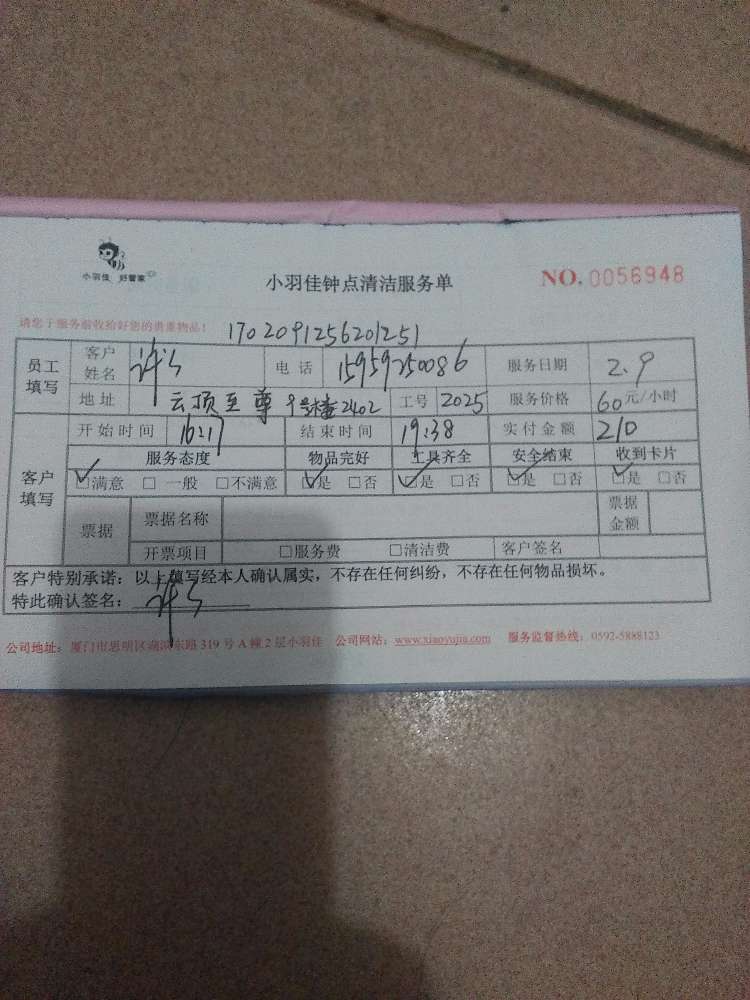 小羽佳 好管家
小羽佳钟点清洁服务单
NO. 0056948
请您于服务前收拾好您的贵重物品!
170209125620251
员工填写 客户姓名 许 电话 15959250086 服务日期 2.9
地址 云顶至尊 9号楼2402 工号 2025 服务价格 60元/小时
开始时间 16:17 结束时间 19:38 实付金额 210
客户填写 服务态度 物品完好 工具齐全 安全结束 收到卡片
☑满意 □一般 □不满意 ☑是 □否 ☑是 □否 ☑是 □否 ☑是 □否
票据 票据名称 票据金额
开票项目 □服务费 □清洁费 客户签名
客户特别承诺：以上填写经本人确认属实，不存在任何纠纷，不存在任何物品损坏。
特此确认签名： 许
公司地址：厦门市思明区湖滨东路 319 号 A 幢 2 层小羽佳 公司网站：www.xiaoyujia.com 服务监督热线：0592-5888123